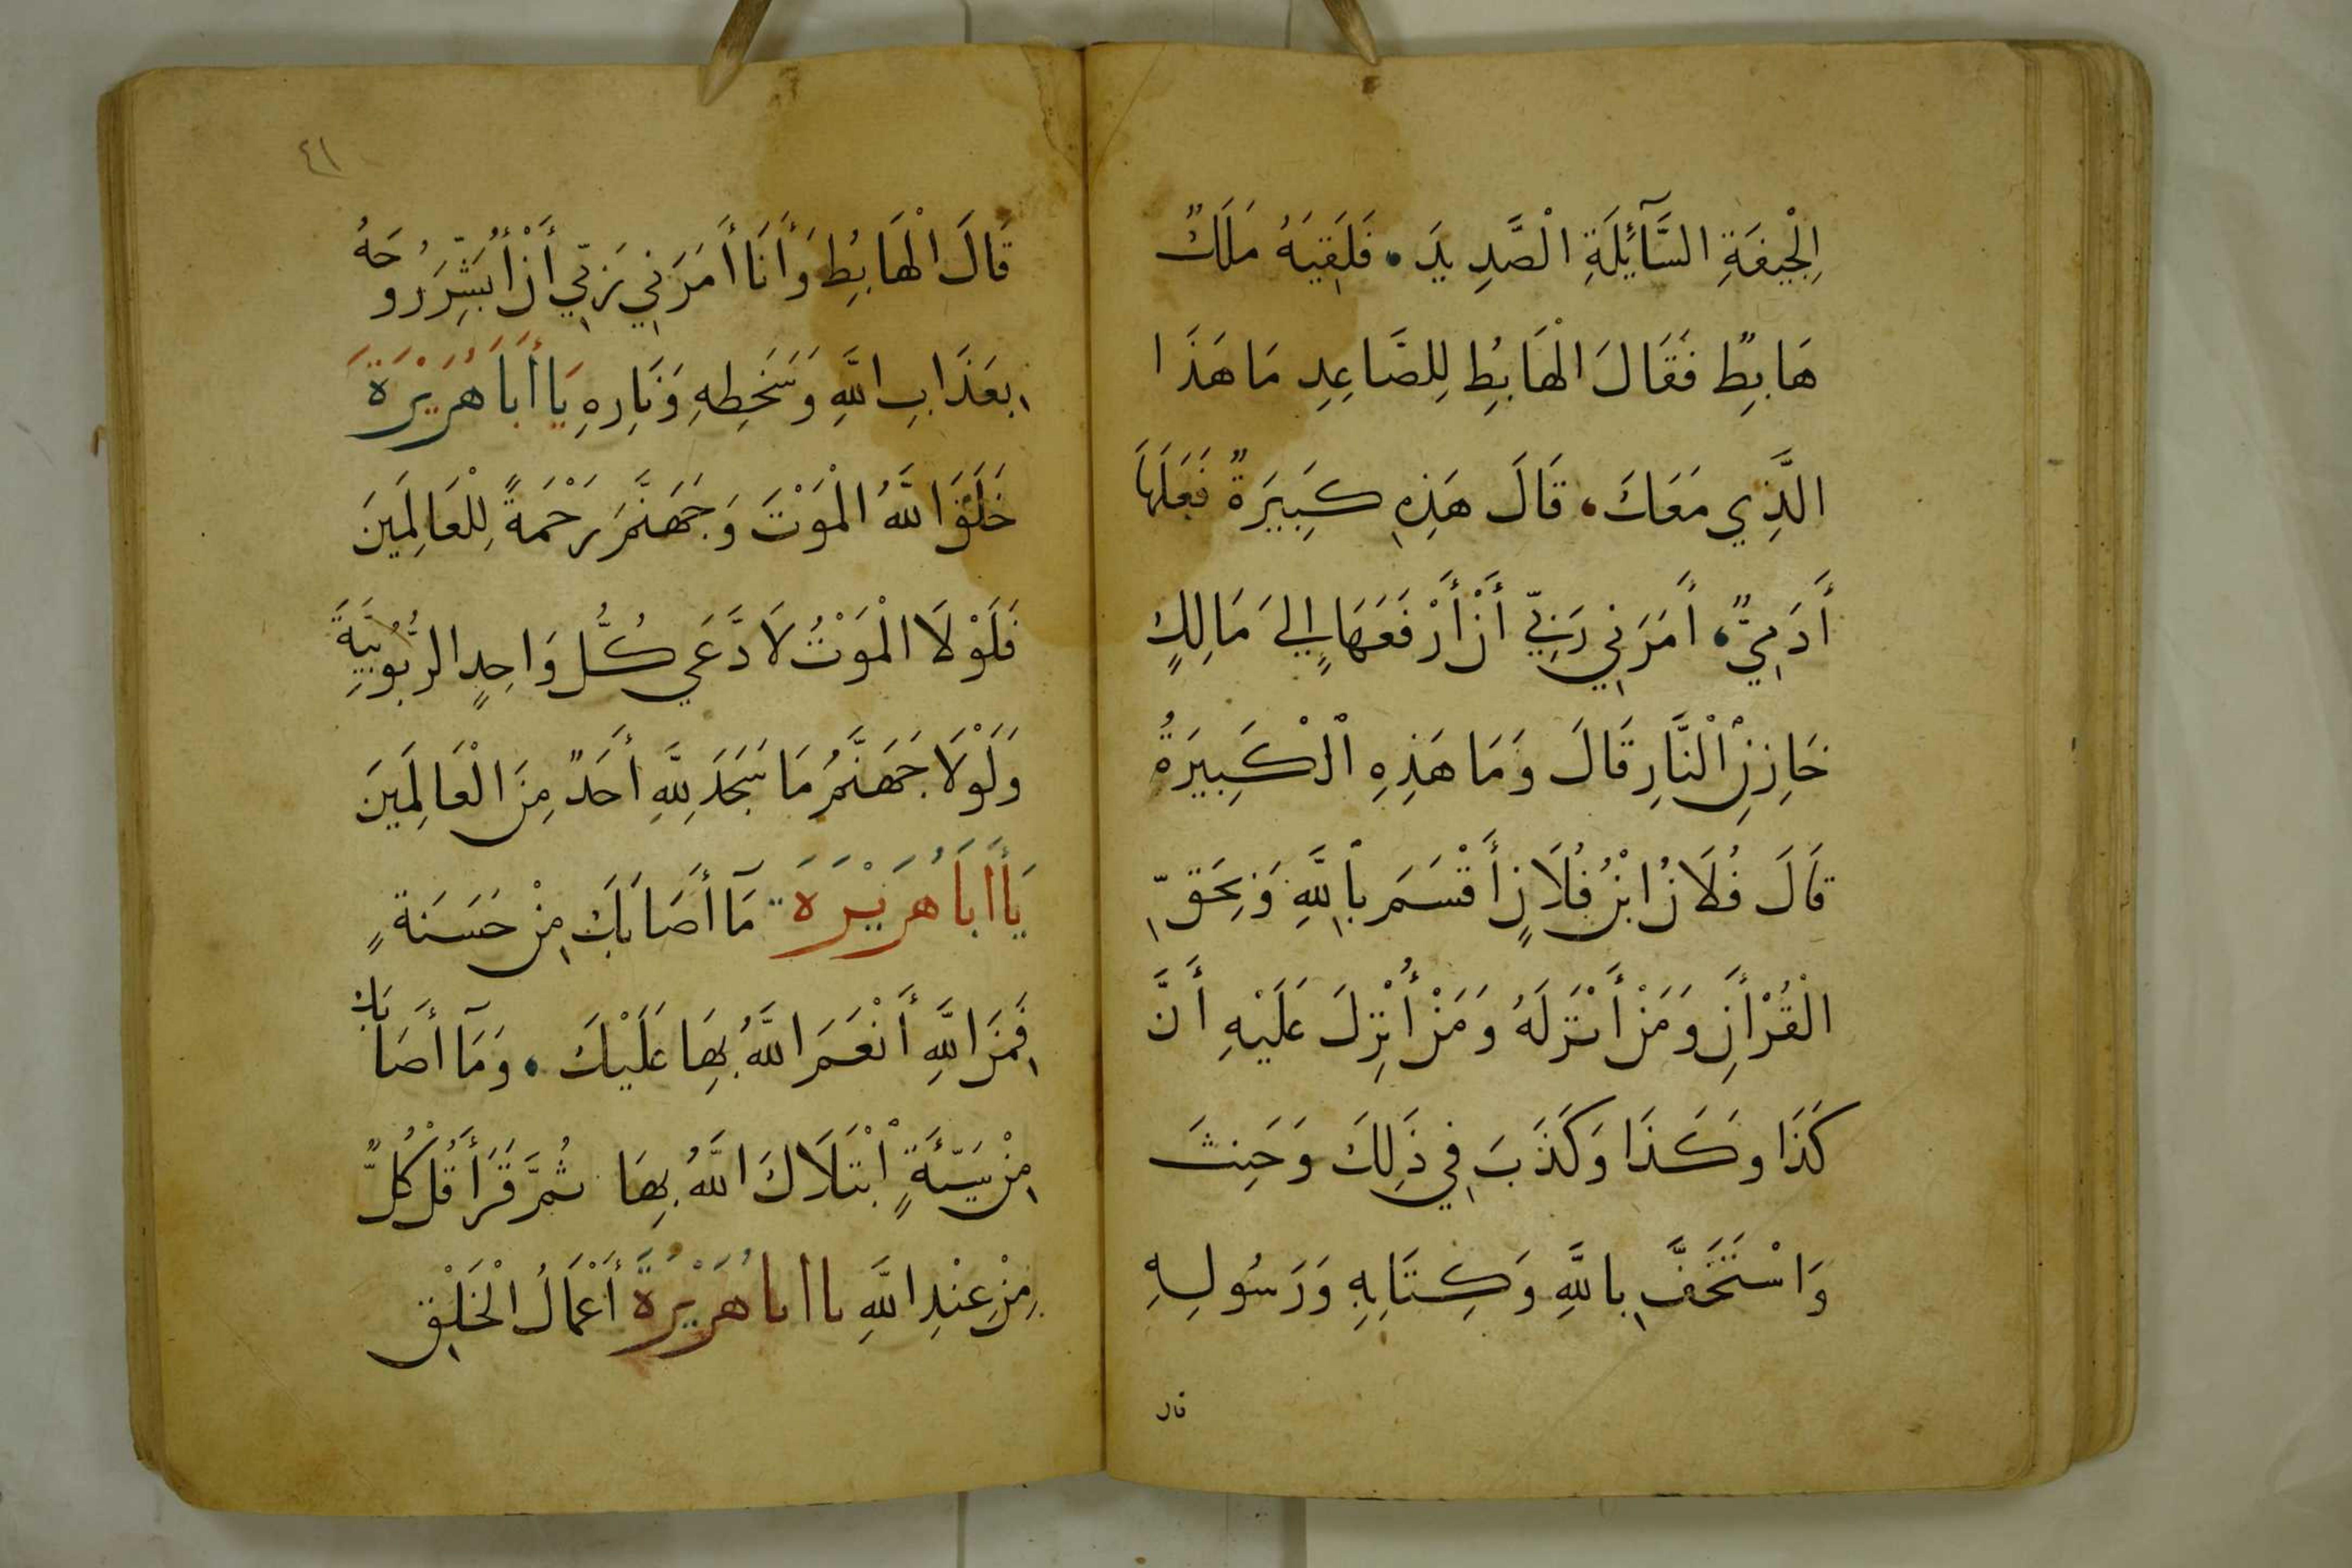 الْجِيفَةِ السَّآئِلَةِ الْصَّدِيدَ . فَلَقِيَهُ مَلَكٌ
هَابِطٌ فَقَالَ الْهَابِطُ لِلصَّاعِدِ مَا هَذَا
الَّذِي مَعَكَ . قَالَ هَذِهِ كَبِيرَةٌ فَعَلَهَا
أَدَمِيٌّ . أَمَرَنِي رَبِّي أَنْ أَرْفَعَهَا إِلَى مَالِكٍ
خَازِنِ الْنَّارِ قَالَ وَمَا هَذِهِ الْكَبِيرَةُ
قَالَ فُلَانُ ابْنُ فُلَانٍ أَقْسَمَ بِاللَّهِ وَبِحَقِّ
الْقُرْأَنِ وَمَنْ أَنْزَلَهُ وَمَنْ أُنْزِلَ عَلَيْهِ أَنَّ
كَذَا وَكَذَا وَكَذَبَ فِي ذَلِكَ وَحَنِثَ
وَاسْتَخَفَّ بِاللَّهِ وَكِتَابِهِ وَرَسُولِهِ
قال
٤١
قَالَ الْهَابِطُ وَأَنَا أَمَرَنِي رَبِّي أَنْ أُبَشِّرَ رُوحَهُ
بِعَذَابِ اللَّهِ وَسَخَطِهِ وَنَارِهِ يَا أَبَا هُرَيْرَةَ
خَلَقَ اللَّهُ الْمَوْتَ وَجَهَنَّمَ رَحْمَةً لِلْعَالَمِينَ
فَلَوْلَا الْمَوْتُ لَادَّعَى كُلُّ وَاحِدٍ الرُّبُوبِيَّةَ
وَلَوْلَا جَهَنَّمُ مَا سَجَدَ لِلَّهِ أَحَدٌ مِنَ الْعَالَمِينَ
يَا أَبَا هُرَيْرَةَ مَآ أَصَابَكَ مِنْ حَسَنَةٍ
فَمِنَ اللَّهِ أَنْعَمَ اللَّهُ بِهَا عَلَيْكَ . وَمَآ أَصَابَكَ
مِنْ سَيِّئَةٍ ابْتَلَاكَ اللَّهُ بِهَا ثُمَّ قَرَأَ قُلْ كُلٌّ
مِنْ عِنْدِ اللَّهِ يا أبا هُرَيْرَةَ أَعْمَالُ الْخَلْقِ